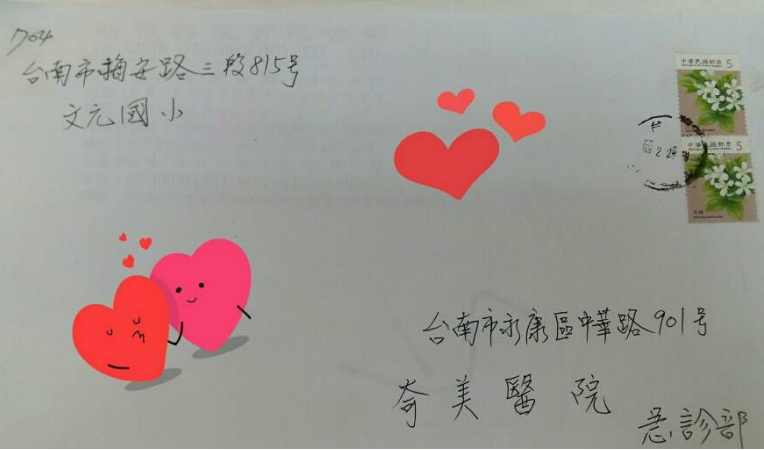 704
台南市海安路三段815号
文元國小
中華民國郵票 5
中華民國郵票 5
2.29
台南市永康區中華路901号
奇美醫院
急診部